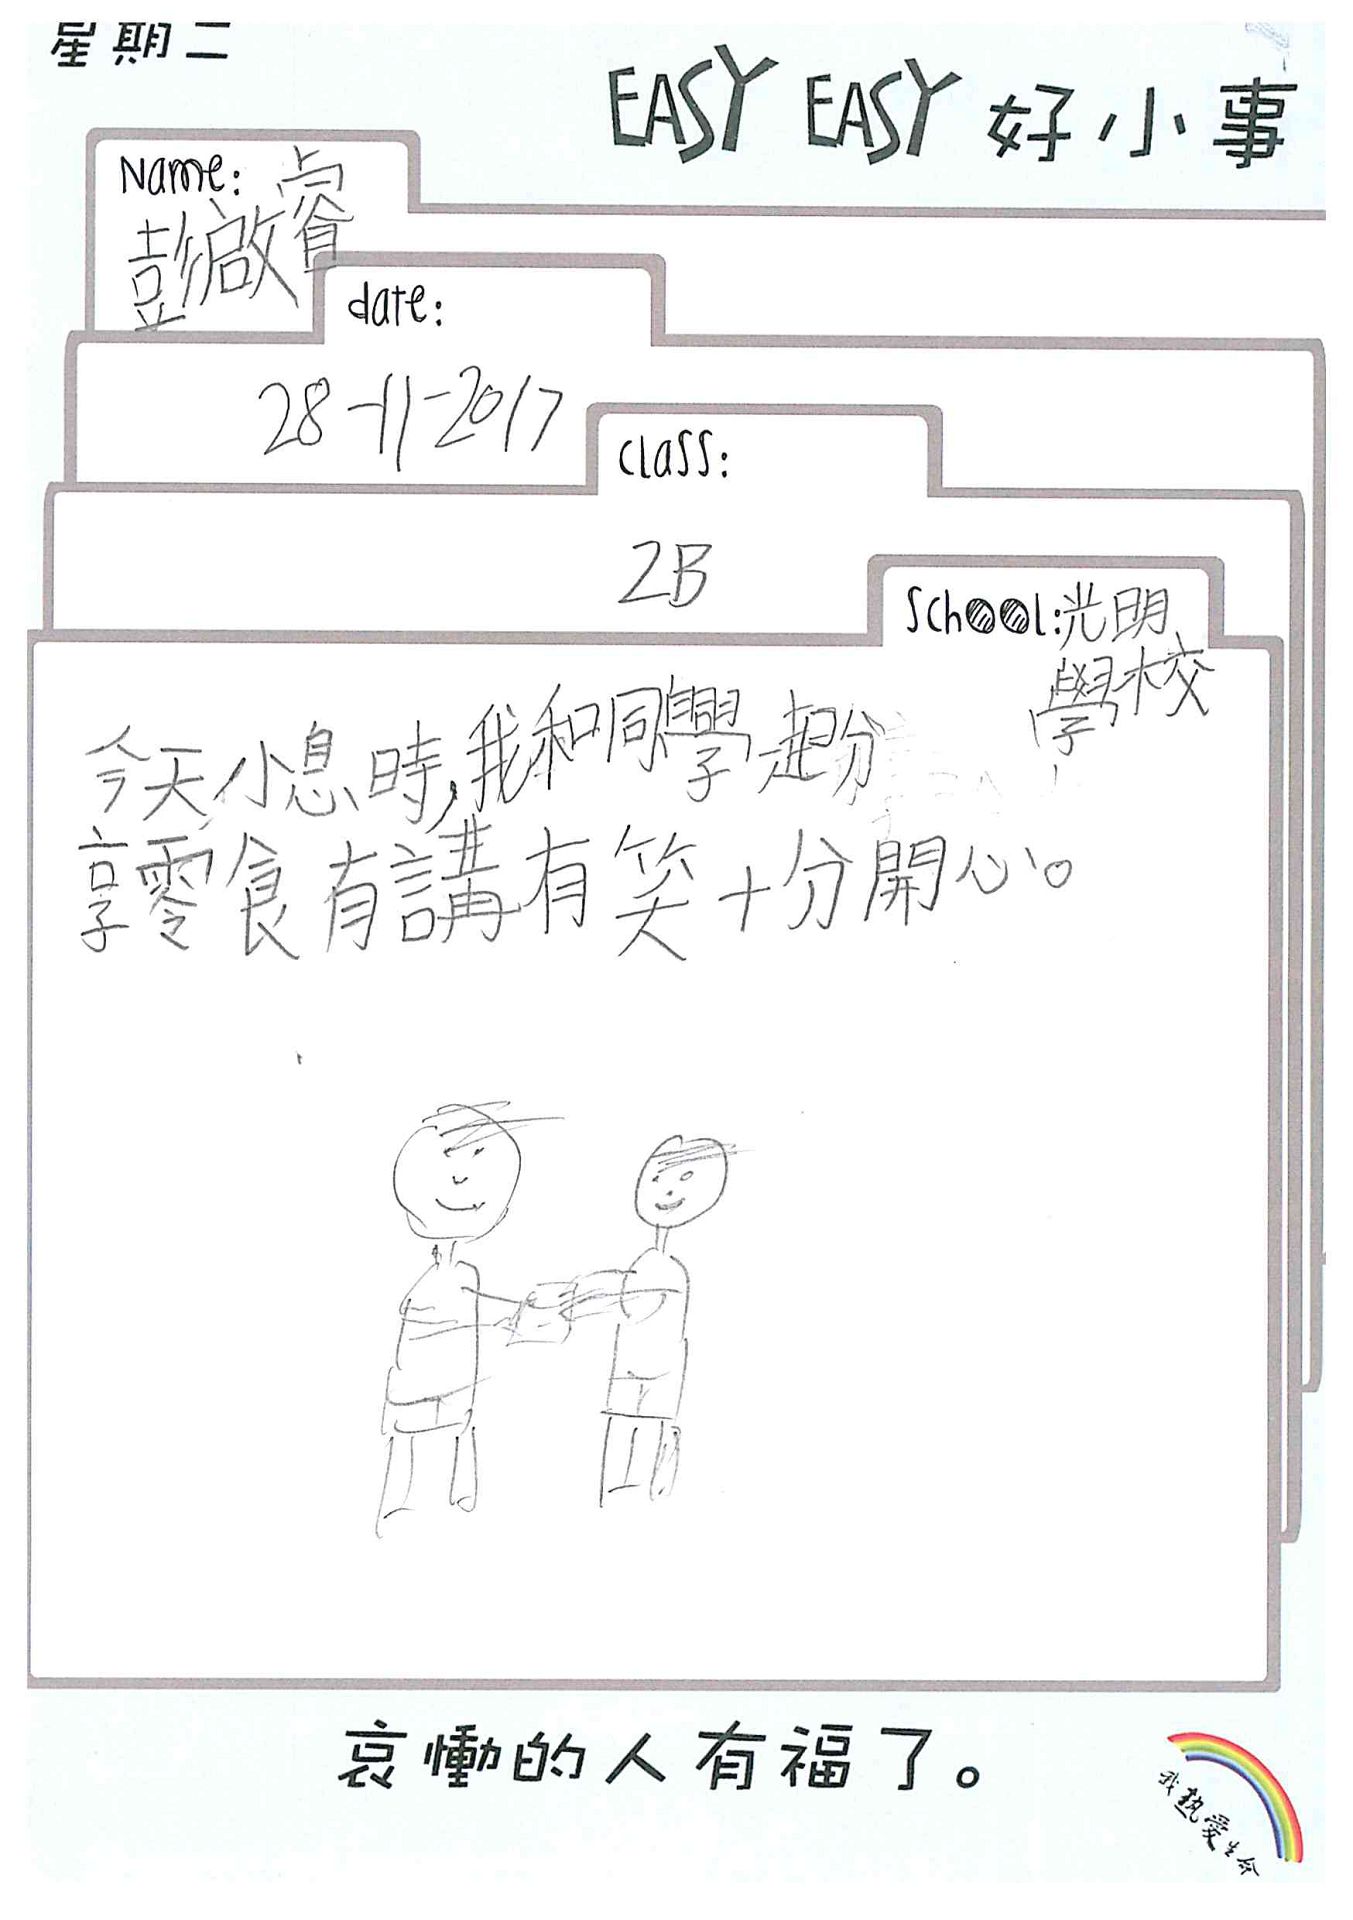 星期二
EASY EASY 好小事
Name:
彭啟睿
date:
28-11-2017
class:
2B
School:光明
學校
今天小息時,我和同學一起分
享零食有講有笑十分開心。
哀慟的人有福了。
我熱愛生命